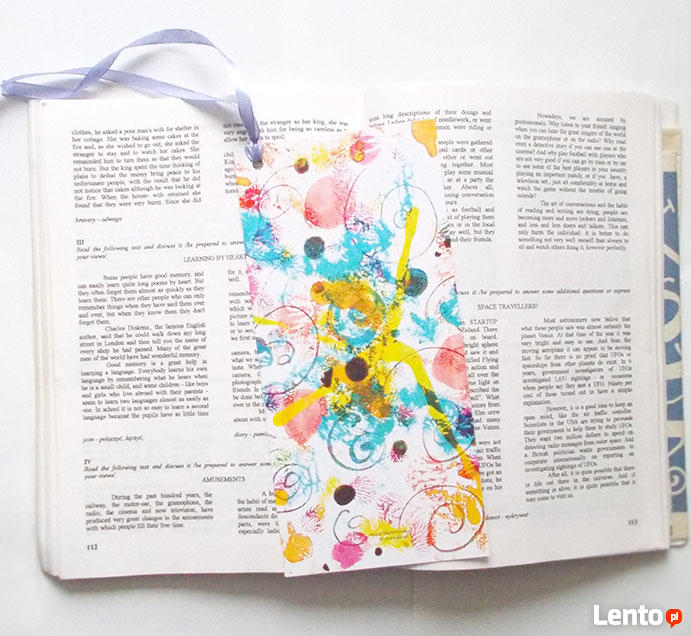 clothes, he asked a poor man's wife for shelter in
her cottage. She was baking some cakes at the
fire and, as she wished to go out, she asked the
stranger to stay and to watch her cakes. She
remainded him to turn them so that they would
not burn. But the king spent the time thinking of
plans to defeat the enemy bring peace to his
unfortunate people, with the result that he did
not notice that cakes although he was looking at
the fire. When the house- wife returned she
found that they were very burnt. Since she did
bravery - odwaga
III
Read the following text and discuss it /be prepared to answer
your views!
LEARNING BY HEART
Some people have good memory, and
can easily learn quite long poems by heart. But
they often forget them almost so quickly as they
learn them. There are other people who can only
remember things when they have said them over
and over, but when they know them they don't
forget them.
Charles Diskens, the famous English
author, said that he could walk down any long
street in London and then tell you the name of
every shop he had passed. Many of the great
men of the world have had wonderful memory.
Good memory is a great help in
learning a language. Everybody learns his own
language by remembering what he hears when
he is a small child, and some children - like boys
and girls who live abroad with their parents -
seem to learn two languages almost as easily as
one. In school it is not so easy to learn a second
language because the pupils have so little time
join - połączyć, łączyć,
IV
Read the following text and discuss it /be prepared to answer som
your views!
AMUSEMENTS
During the past hundred years, the
railway, the motor-car, the gramophone, the
radio, the cinema and now television, have
produced very great changes in the amusements
with which people fill their free time.
112
not re the stranger as her king, she was
very ang with him for being so careless
allow her to spoil.
diary - pamię
long descriptions of their doings and
needlework, or went
men were riding or
people were gathered
yed cards or other
other or went out
ng together. Most
play some musical
so at a party the
her. Above all,
ing conversation
ours
as football and
it of playing them
or in the local
ay well, but they
nd their friends.
Nowadays, we are amused by
professionals. Why listen to your friend singing
when you can hear the great singers of the world
on the gramophone or on the radio? Why read
even a detective story if you can see one at the
cinema? And why play football with players who
are not very good if you can go by train or by car
to see some of the best players in your country
playing an important match; or if you have, a
television set, just sit comfortably at home and
watch the game without the trouble of going
outside?
The art of conversations and the habit
of reading and writing are dying; people are
becoming more and more lookers and listeners,
and less and less doers and talkers. This can
only harm the individual: it is better to do
something not very well oneself than always to
sit and watch others doing it, however perfectly.
it /be prepared to answer some additional questions or express
SPACE TRAVELLERS!
STARTUP
Zealand. There
on board.
ght sphere
saw it and
ified Flying
action and
all over the
us light on
scribed the
ball". What
itors from
film crew
had many
as Venus.
were not
air traffic
When
UFOs he
got an
ists, he
s on his
Most astronomers now believe that
what these people saw was almost certainly the
planet Venus. At that time of the year it was
very bright and easy to see. And from the
moving aeroplane it can appear to be moving
fast. So far there is no proof that UFOs or
spaceships from other planets do exist. In 3
years, government investigators of UFOs
investigated 1,631 sightings - ie occasions
when people say they saw a UFO. Nearly per
cent of these turned out to have a simple
explanation.
However, it is a good idea to keep an
open mind, like the air traffic controller.
Scientists in the USA are trying to persuade
their government to help them to study UFOs.
They want two million dollars to spend on
detecting radio messages from outer space. And
a British politician wants governments to
cooperate internationally on reporting an
investigating sightings of UFOs.
After all, it is quite possible that there
is life out there in the universe. And if
something is alive, it is quite possible that it
may come to visit us.
detect - wykrywać
113
Lento.pl